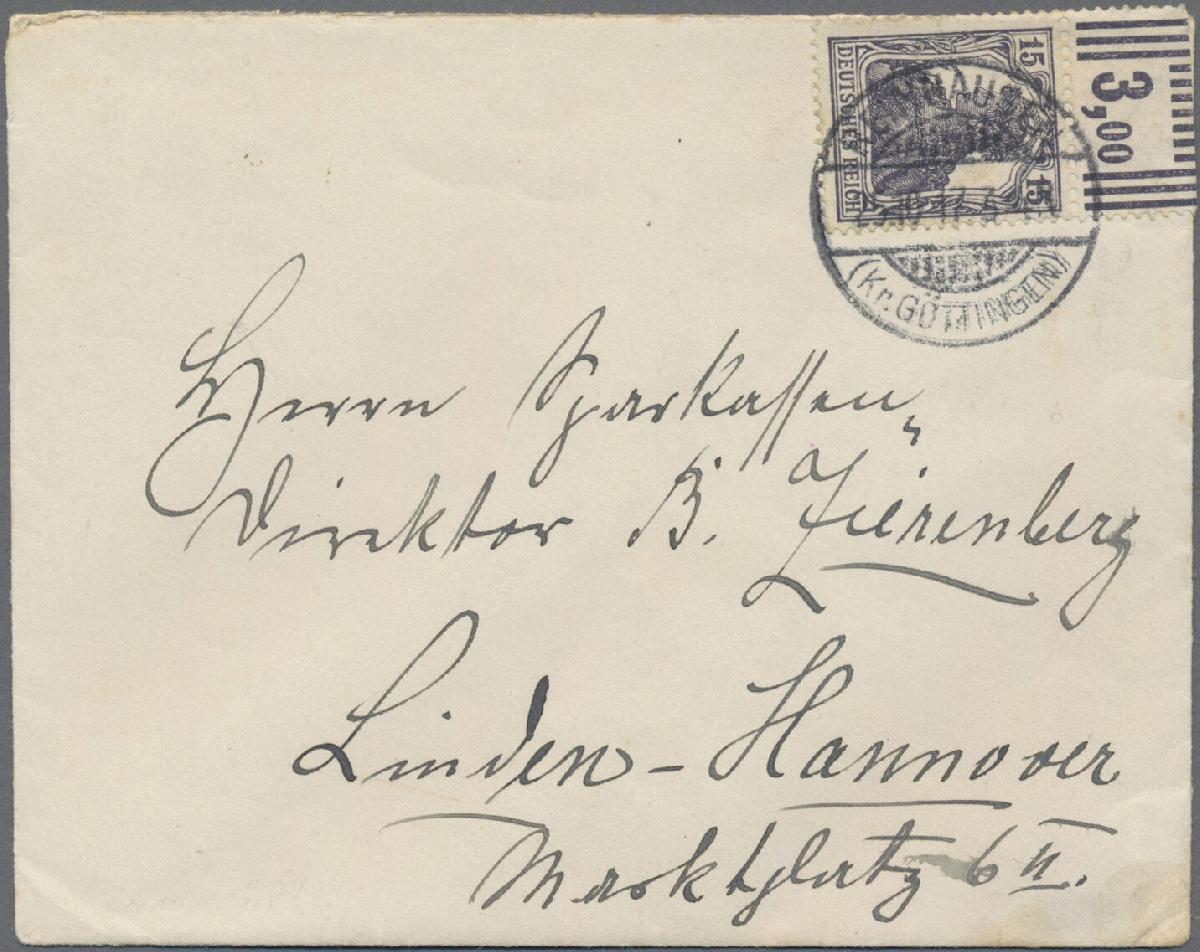 15 15
DEUTSCHES REICH
3,00
(Kr. GÖTTINGEN)
Herrn Sparkassen-
Direktor B. Zierenberg
Linden-Hannover
Marktplatz 6 II.